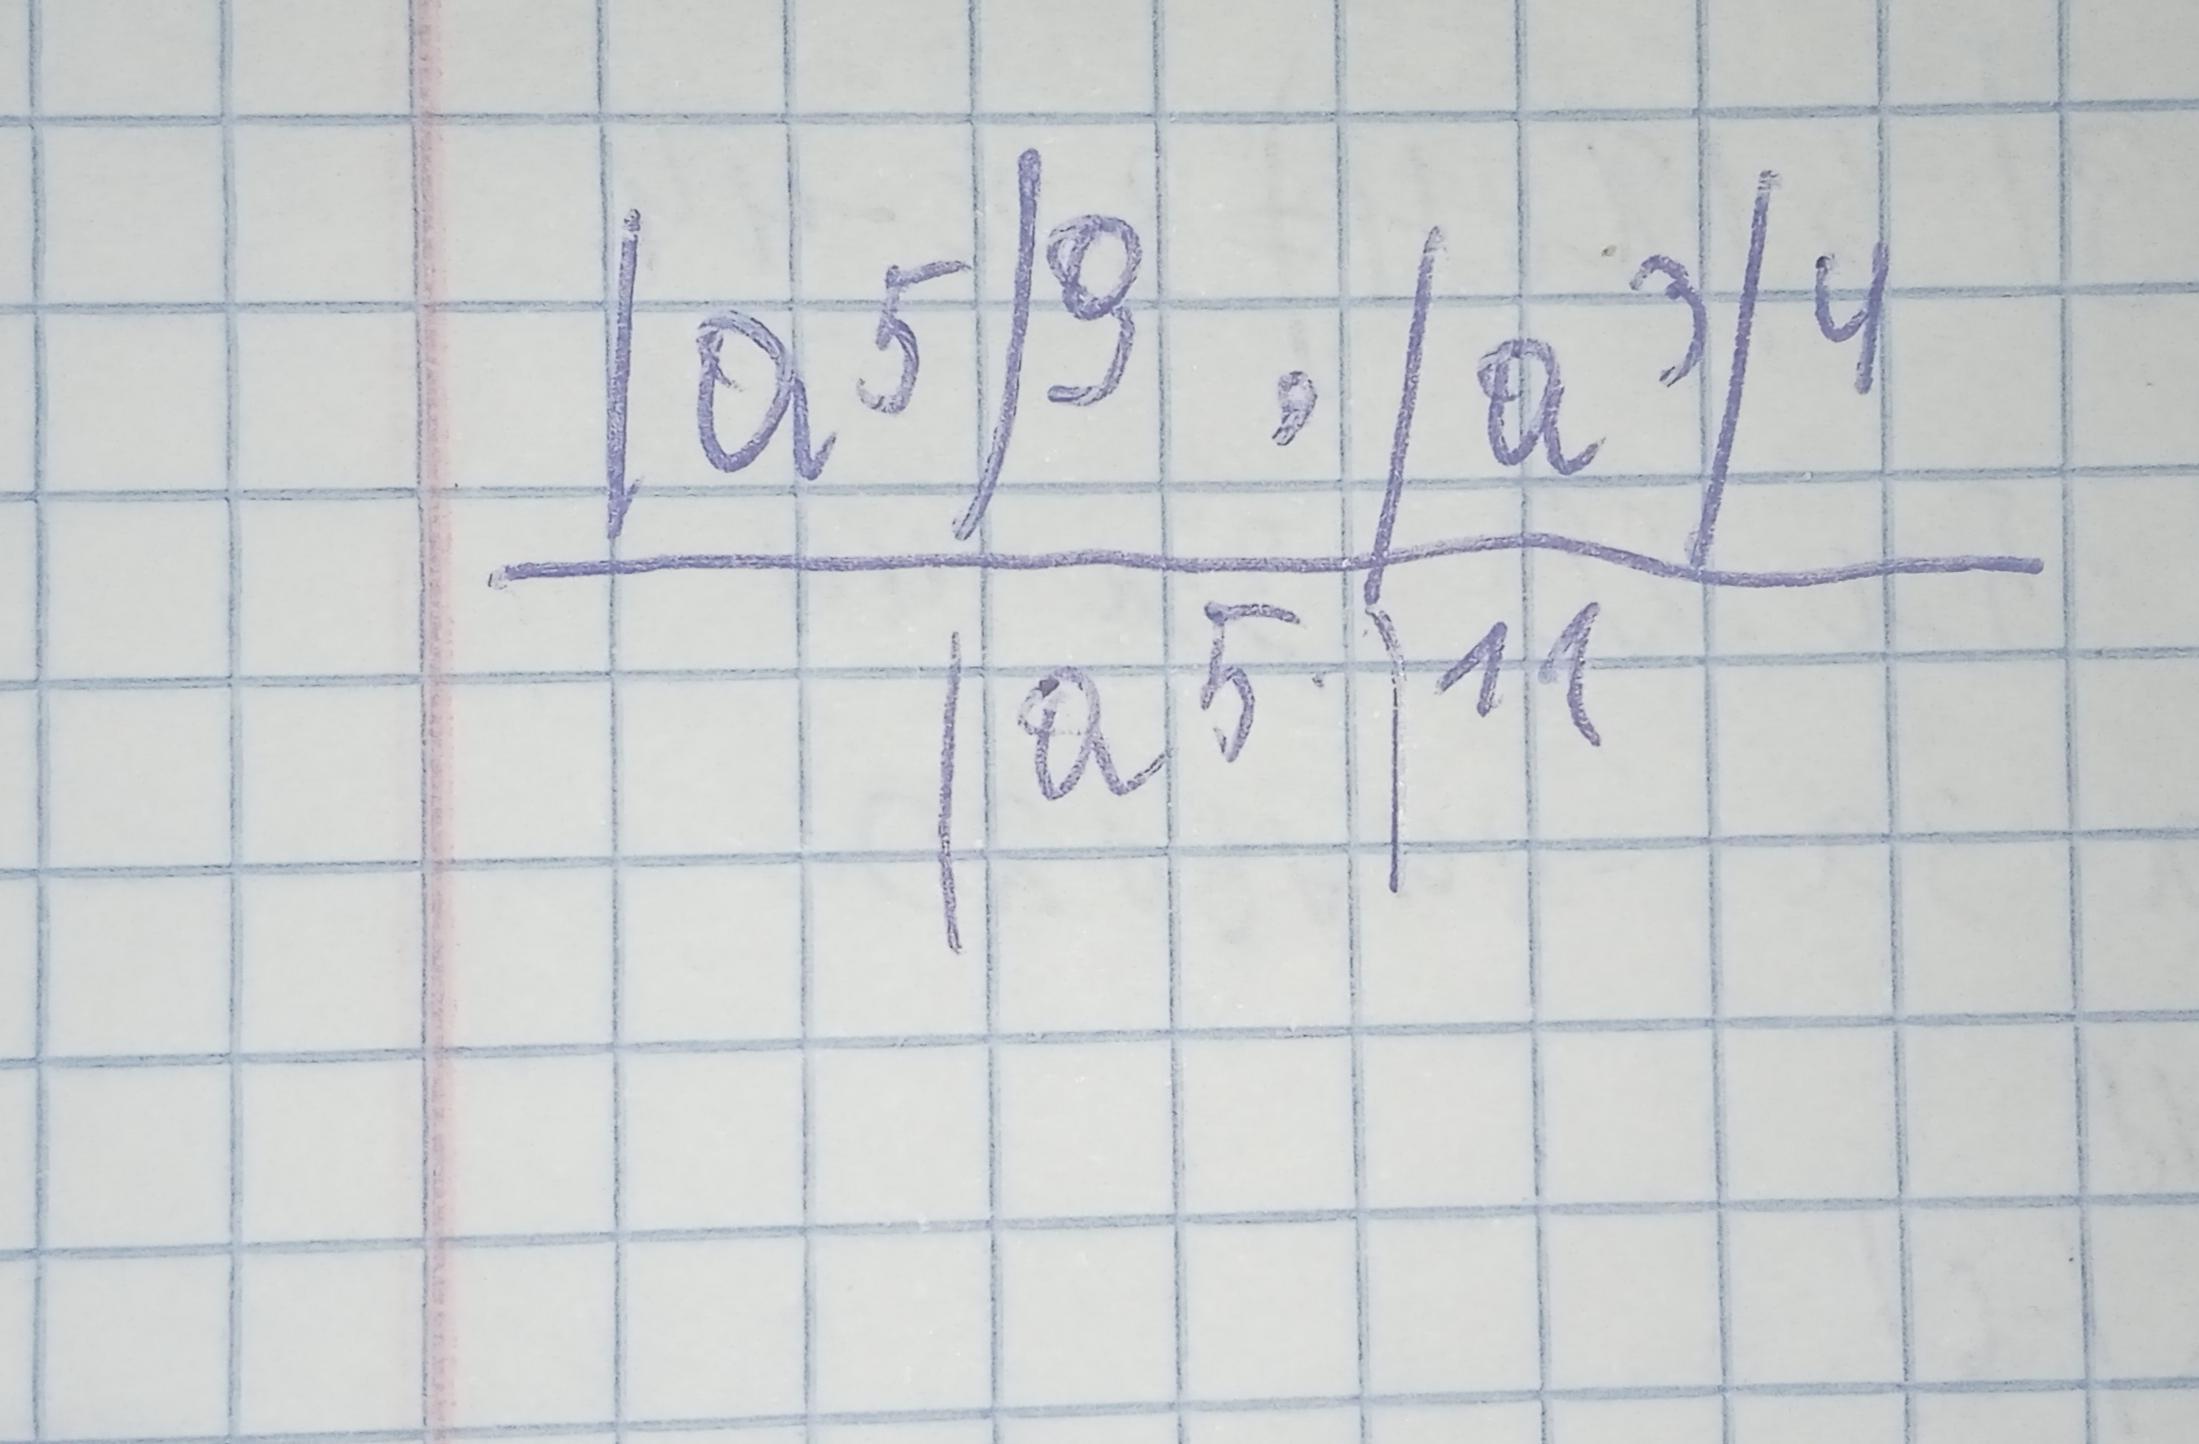 (a⁵)⁹ · (a³)⁴
(a⁵)¹¹